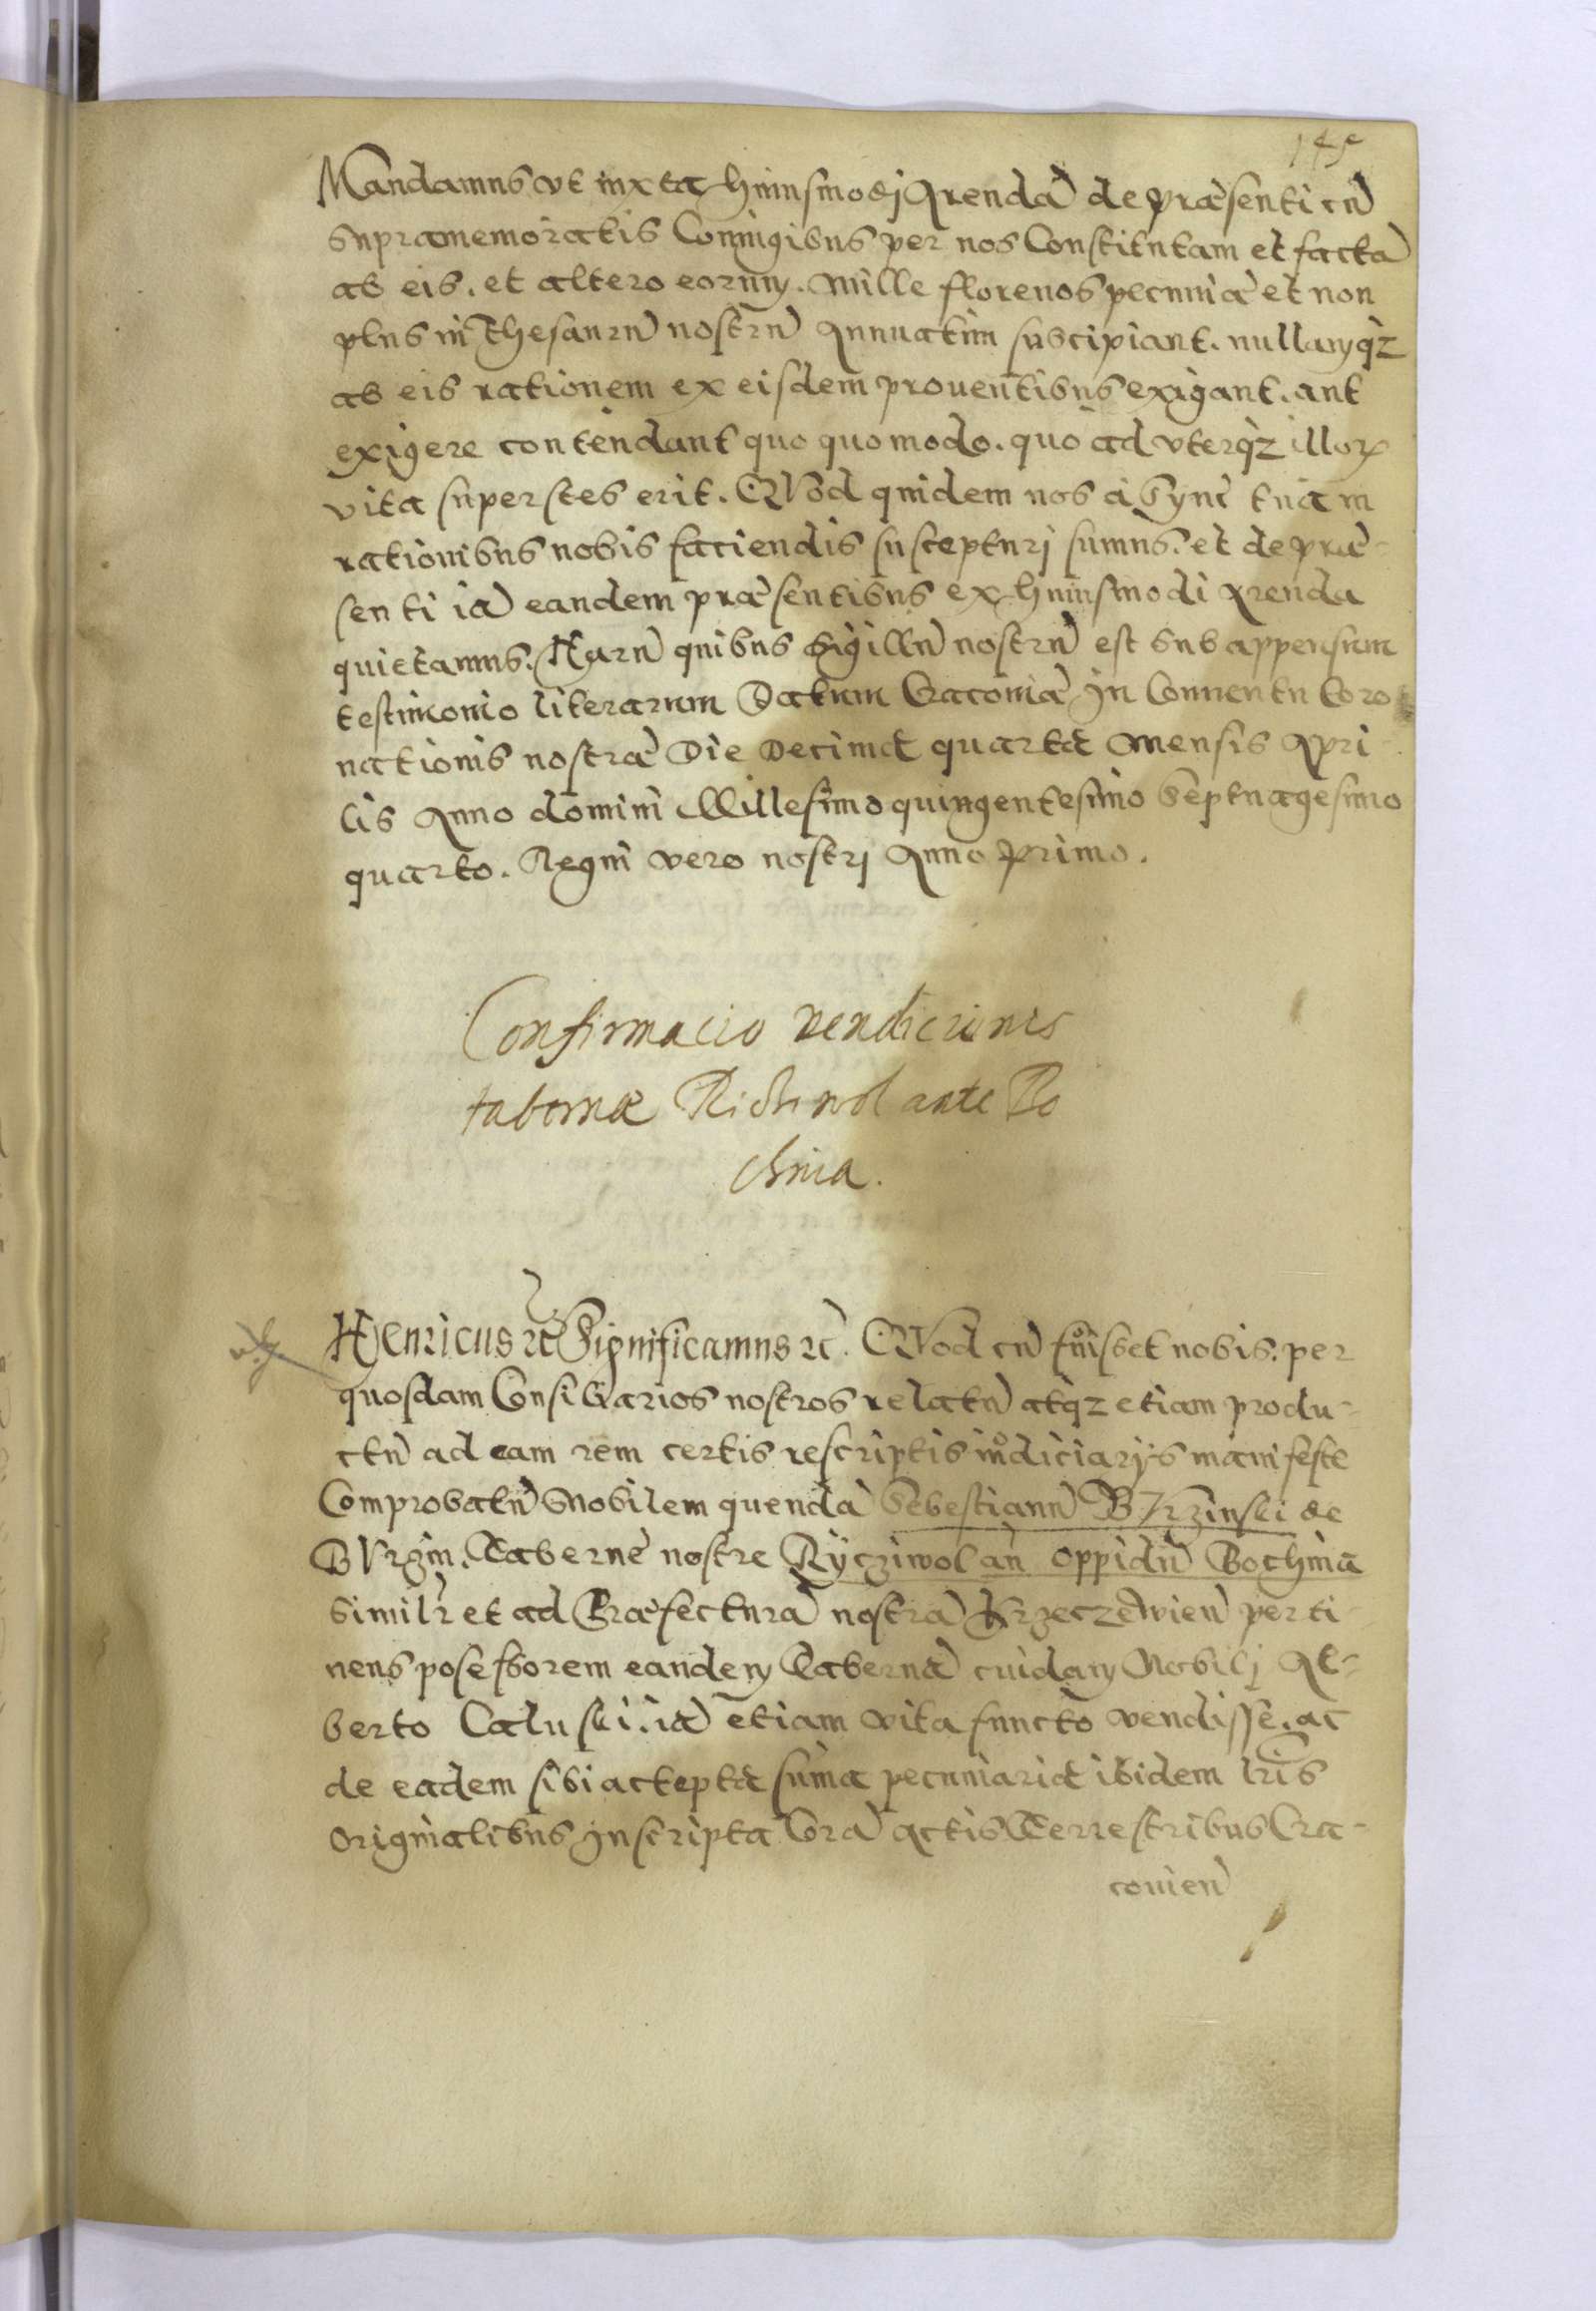 145
Mandamus vt iuxta huiusmodj Arendā de præsenti cū
supramemoratis Coniugibus per nos Constitutam et factā
ab eis, et altero eorum. Mille florenos pecuniæ et non
plus in Thesaurū nostrū Annuatim suscipiant. nullamqz
ab eis rationem ex eisdem prouentibus exigant. aut
exigere contendant quo quo modo. quo ad vterqz illorꝝ
vita superstes erit. QVod quidem nos à Syncte tua in
rationibus nobis faciendis suscepturj sumus. et de præ-
senti iā eandem præsentibus ex huiusmodi Arenda
quietamus. Harū quibus Sigillū nostrū est subappensum
testimonio literarum Datum Cracouiæ In Conuentu coro
nationis nostræ Die Decima quarta Mensis Apri
lis Anno domini Millesimo quingentesimo Septuagesimo
quarto. Regni vero nostrj Anno primo.
Confirmacio vendicionis
tabernæ Richiwol ante Bo
chnia.
HEnricus ꝛc Significamus ꝛc. QVod cū fuisset nobis. per
quosdam Consiliarios nostros relatū atqz etiam produ-
ctū ad eam rem certis rescriptis iudiciarijs manifeste
Comprobatū Nobilem quendā Sebestianū BVrzinski de
BVrzin. Taberne nostre Rÿcziwol an oppidū Bochnia
similr et ad Præfecturā nostrā Krzeczowien perti
nens posessorem eandem Tabernā cuidam Nobilj Al-
berto Caluski. iā etiam vita functo vendisse. ac
de eadem sibi accepta suma pecuniaria ibidem lris
originalibus inscripta Corā actis Terrestribus Cra-
couien